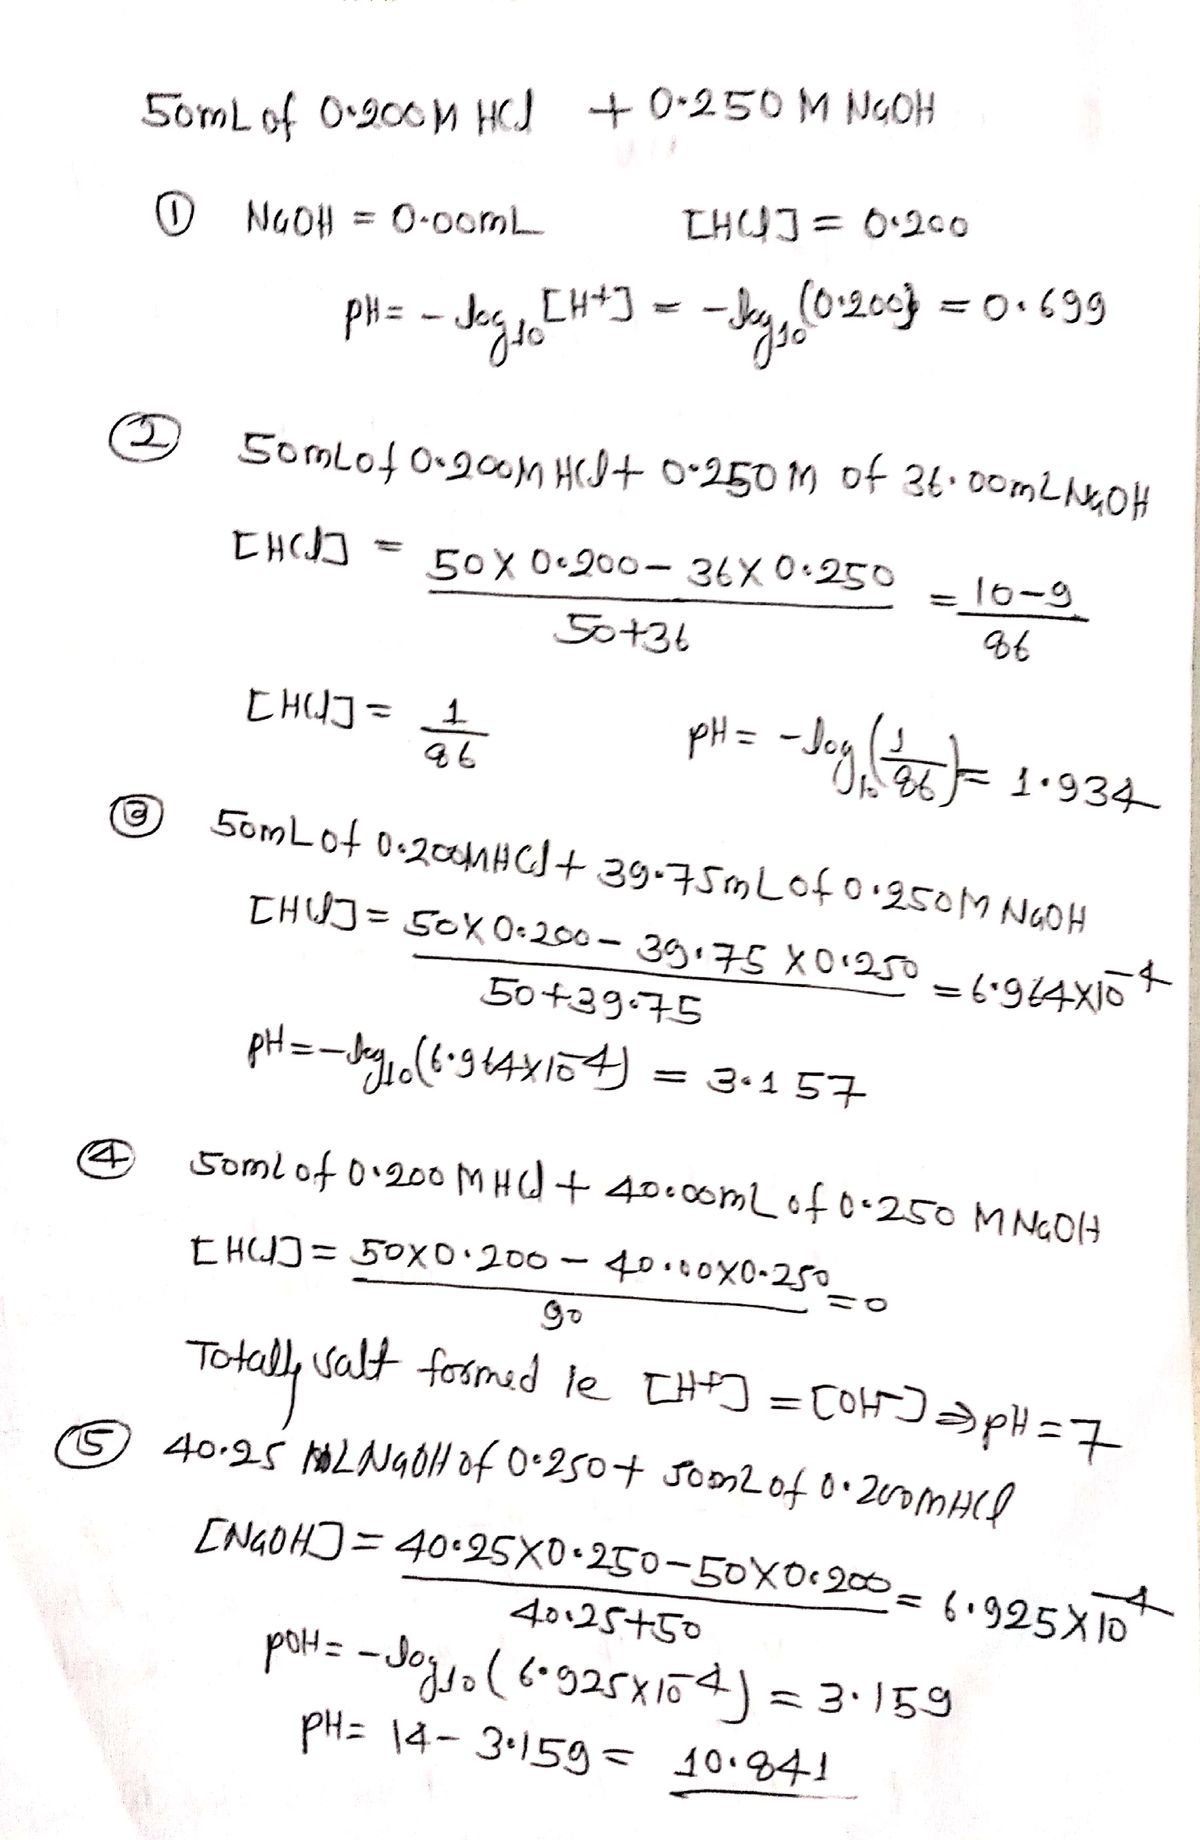 50mL of 0.200M HCl + 0.250 M NaOH
① NaOH = 0.00mL [HCl] = 0.200
pH = - log₁₀[H+] = - log₁₀(0.200} = 0.699
② 50mL of 0.200M HCl + 0.250 M of 36.00mL NaOH
[HCl] = 50 X 0.200 - 36 X 0.250 / 50+36 = 10-9 / 86
[HCl] = 1/86 pH = - log₁₀(1/86) = 1.934
③ 50mL of 0.200M HCl + 39.75mL of 0.250M NaOH
[HCl] = 50 X 0.200 - 39.75 X 0.250 / 50+39.75 = 6.964X10⁻⁴
pH = - log₁₀(6.964X10⁻⁴) = 3.157
④ 50mL of 0.200 M HCl + 40.00mL of 0.250 M NaOH
[HCl] = 50X0.200 - 40.00X0.250 / 90 = 0
Totally salt formed ie [H+] = [OH-] ⇒ pH = 7
⑤ 40.25 mL NaOH of 0.250 + 50mL of 0.200M HCl
[NaOH] = 40.25X0.250 - 50X0.200 / 40.25+50 = 6.925X10⁻⁴
pOH = - log₁₀(6.925X10⁻⁴) = 3.159
pH = 14 - 3.159 = 10.841